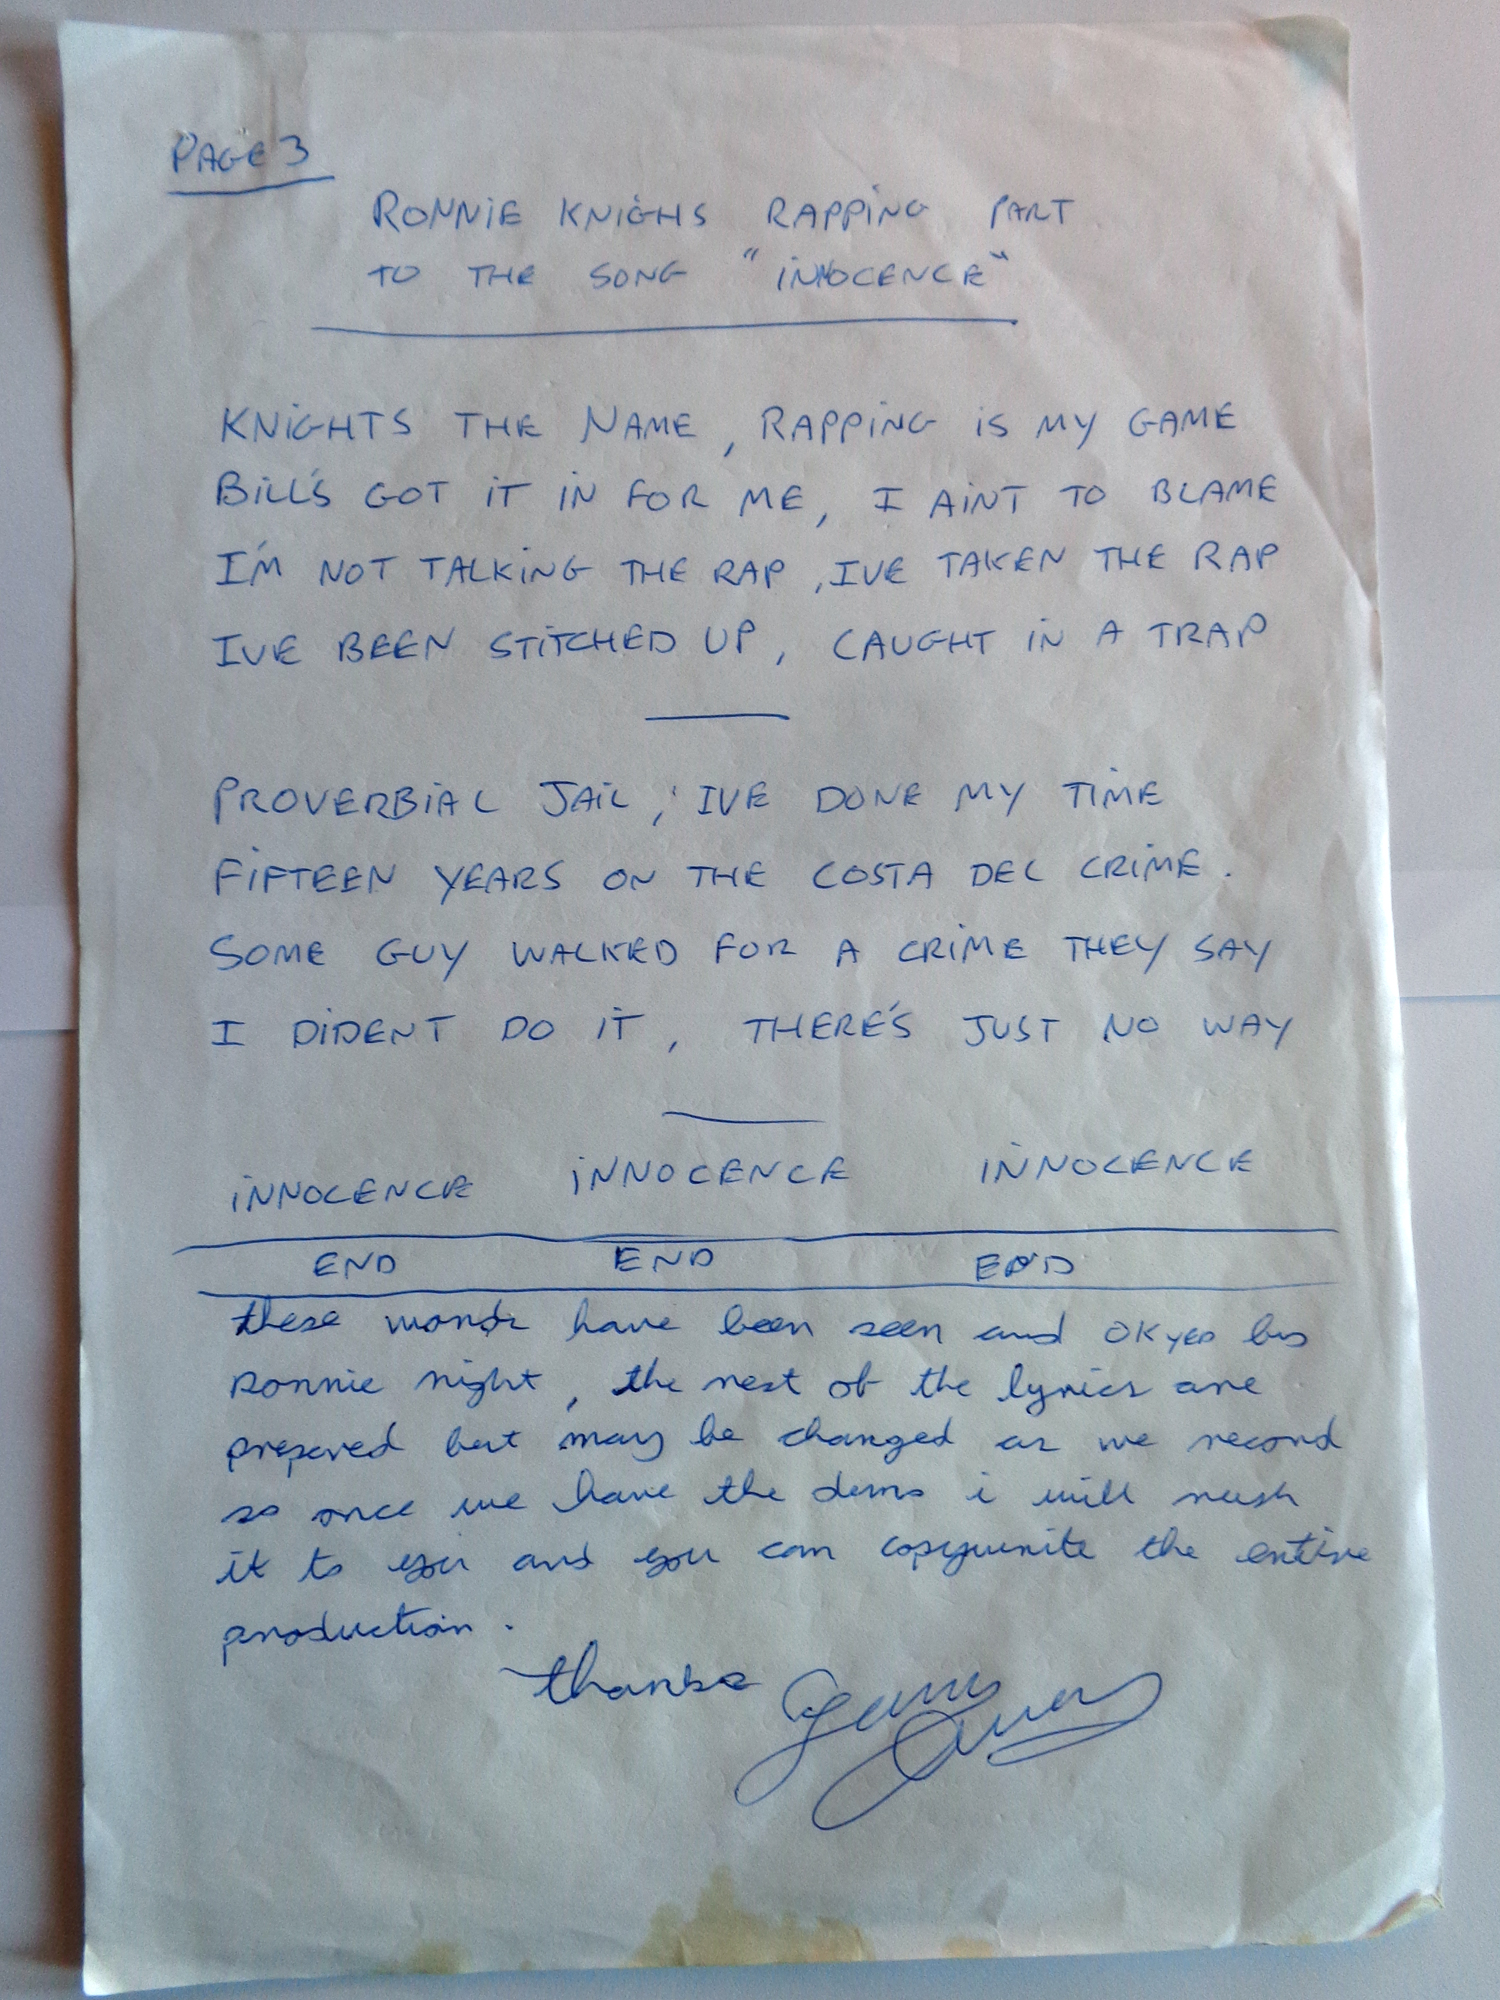 PAGE 3
RONNIE KNIGHS RAPPING PART
TO THE SONG "INNOCENCE"
KNIGHTS THE NAME, RAPPING IS MY GAME
BILL'S GOT IT IN FOR ME, I AINT TO BLAME
I'M NOT TALKING THE RAP, IVE TAKEN THE RAP
IVE BEEN STITCHED UP, CAUGHT IN A TRAP
PROVERBIAL JAIL, IVE DONE MY TIME
FIFTEEN YEARS ON THE COSTA DEL CRIME.
SOME GUY WALKED FOR A CRIME THEY SAY
I DIDENT DO IT, THERE'S JUST NO WAY
INNOCENCE INNOCENCE INNOCENCE
END END END
these words have been seen and OKyed by
Ronnie night, the rest of the lyrics are
prepared but may be changed as we record
so once we have the demo i will rush
it to you and you can copywrite the entire
production.
thanks